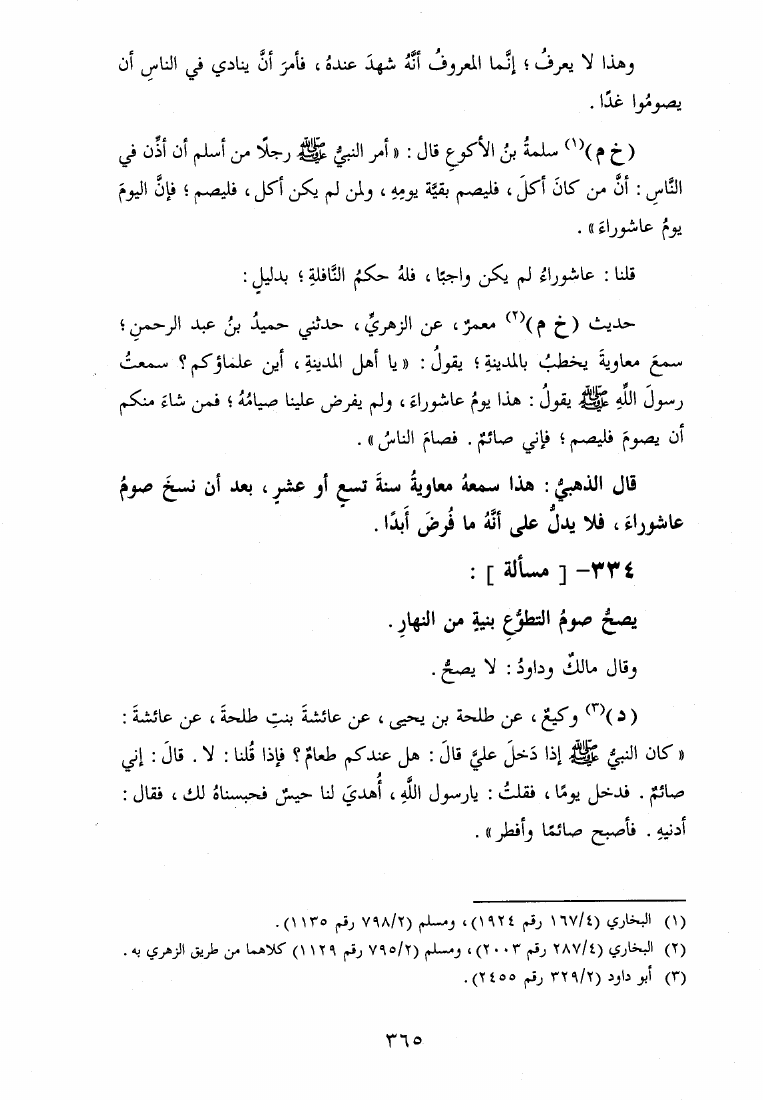 وهذا لا يعرفُ ؛ إنَّما المعروفُ أنَّهُ شهدَ عندهُ ، فأمرَ أنَّ ينادي في الناسِ أن
يصومُوا غدًا .
(خ م)(١) سلمةُ بنُ الأكوعِ قال : « أمر النبيُّ ﷺ رجلًا من أسلم أن أذِّن في
النَّاسِ : أنَّ من كانَ أكلَ ، فليصم بقيَّة يومِهِ ، ولمن لم يكن أكل ، فليصم ؛ فإنَّ اليومَ
يومُ عاشوراءَ » .
قلنا : عاشوراءُ لم يكن واجبًا ، فلهُ حكمُ النَّافلةِ ؛ بدليلٍ :
حديث (خ م)(٢) معمرٌ ، عن الزهريِّ ، حدثني حميدُ بنُ عبد الرحمنِ ؛
سمعَ معاويةَ يخطبُ بالمدينةِ ؛ يقولُ : « يا أهل المدينةِ ، أين علماؤكم ؟ سمعتُ
رسولَ اللَّهِ ﷺ يقولُ : هذا يومُ عاشوراءَ ، ولم يفرض علينا صيامُهُ ؛ فمن شاءَ منكم
أن يصومَ فليصم ؛ فإني صائمٌ . فصامَ الناسُ » .
قال الذهبيُّ : هذا سمعهُ معاويةُ سنةَ تسعٍ أو عشرٍ ، بعد أن نسخَ صومُ
عاشوراءَ ، فلا يدلُّ على أنَّهُ ما فُرضَ أَبدًا .
٣٣٤- [ مسألة ] :
يصحُّ صومُ التطوُّعِ بنيةٍ من النهارِ .
وقال مالكٌ وداودُ : لا يصحُّ .
(د)(٣) وكيعٌ ، عن طلحة بن يحيى ، عن عائشةَ بنتِ طلحةَ ، عن عائشةَ :
« كان النبيُّ ﷺ إذا دَخلَ عليَّ قالَ : هل عندكم طعامٌ ؟ فإذا قُلنا : لا . قالَ : إني
صائمٌ . فدخل يومًا ، فقلتُ : يارسول اللَّهِ ، أُهديَ لنا حيسٌ فحبسناهُ لك ، فقال :
أدنيهِ . فأصبح صائمًا وأفطر » .
(١) البخاري (١٦٧/٤ رقم ١٩٢٤) ، ومسلم (٧٩٨/٢ رقم ١١٣٥) .
(٢) البخاري (٢٨٧/٤ رقم ٢٠٠٣) ، ومسلم (٧٩٥/٢ رقم ١١٢٩) كلاهما من طريق الزهري به .
(٣) أبو داود (٣٢٩/٢ رقم ٢٤٥٥) .
٣٦٥